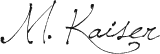 M. Kaiser